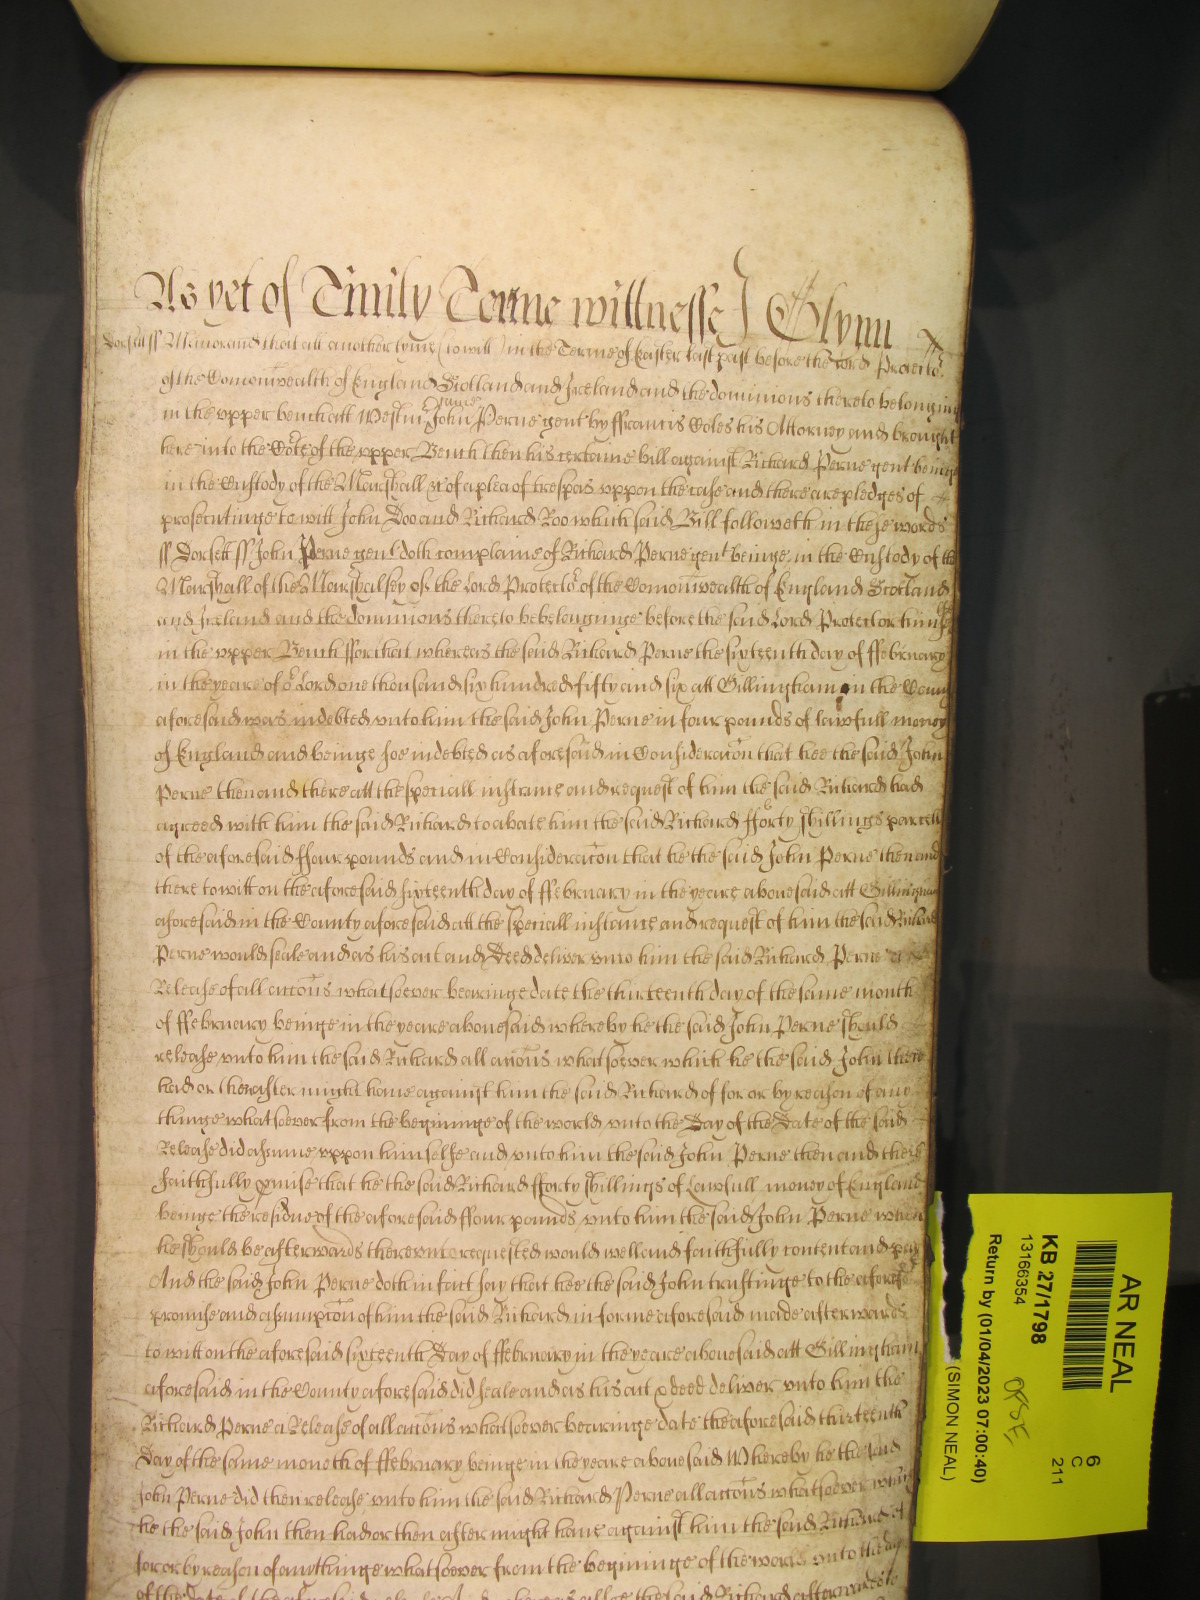 As yet of Trinity Terme wittnesse J Glynn
Dorsett ss Memorand that att another tyme (to witt) in the Terme of Easter last past before the Lord Protector
of the Comonwealth of England Scotland and Ireland and the dominions thereto belonging
in the upper bench att Westm came John Perne gent by ffrancis Coles his Attorney and brought
here into the Cote of the upper Bench then his certaine bill against Richard Perne gent beinge
in the Custody of the Marshall &c of a plea of trespas uppon the case and there are pledges of
prosecutinge to witt John Doo and Richard Roo which said Bill followeth in these words
ss Dorsett ss John Perne gent doth complaine of Richard Perne gent beinge in the Custody of the
Marshall of the Marshalsey of the Lord Protector of the Comonwealth of England Scotland
and Ireland and the dominions thereto belonginge before the said Lord Protector himselfe
in the upper Bench ffor that whereas the said Richard Perne the sixteenth day of ffebruary
in the yeare of or Lord one thousand six hundred fifty and six att Gillingham in the County
aforesaid was indebted unto him the said John Perne in four pounds of lawfull money
of England and beinge soe indebted as aforesaid in Consideracon that hee the said John
Perne then and there att the speciall instance and request of him the said Richard had
agreed with him the said Richard to abate him the said Richard fforty shillings parcell
of the aforesaid ffour pounds and in Consideracon that he the said John Perne then and
there to witt on the aforesaid sixteenth day of ffebruary in the yeare abovesaid att Gillingham
aforesaid in the County aforesaid att the speciall instance and request of him the said Richard
Perne would seale and as his act and Deed deliver unto him the said Richard Perne a
Release of all accons whatsoever bearinge date the thirteenth day of the same month
of ffebruary beinge in the yeare abovesaid whereby he the said John Perne should
release unto him the said Richard all accons whatsoever which he the said John there
had or thereafter might have against him the said Richard of for or by reason of any
thinge whatsoever from the beginninge of the world unto the Day of the Date of the said
Release did assume uppon himselfe and unto him the said John Perne then and there
faithfully pmise that he the said Richard fforty shillings of Lawfull money of England
beinge the residue of the aforesaid ffour pounds unto him the said John Perne when
he should be afterwards thereunto requested would well and faithfully content and pay
And the said John Perne doth in fact say that hee the said John trustinge to the aforesd
promise and assumpcon of him the said Richard in forme aforesaid made afterwards
to witt on the aforesaid sixteenth Day of ffebruary in the yeare abovesaid att Gillingham
aforesaid in the County aforesaid did seale and as his act & deed deliver unto him the
Richard Perne a Release of all accons whatsoever bearinge date the aforesaid thirteenth
Day of the same moneth of ffebruary beinge in the yeare abovesaid Whereby he the said
John Perne did then release unto him the said Richard Perne all accons whatsoever which
he the said John then had or then after might have against him the said Richard of
for or by reason of any thinge whatsoever from the beginninge of the world unto the day
of the Date of the said Richard afterwards
AR NEAL
KB 27/1798
13166354
Return by (01/04/2023 07:00:40)
(SIMON NEAL)
6
C
211